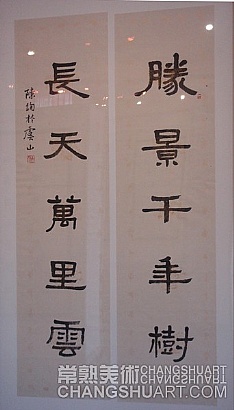 勝景千年樹
長天萬里雲
陳詢於虞山
常熟美術 CHANGSHUART
CHANGSHUART.COM